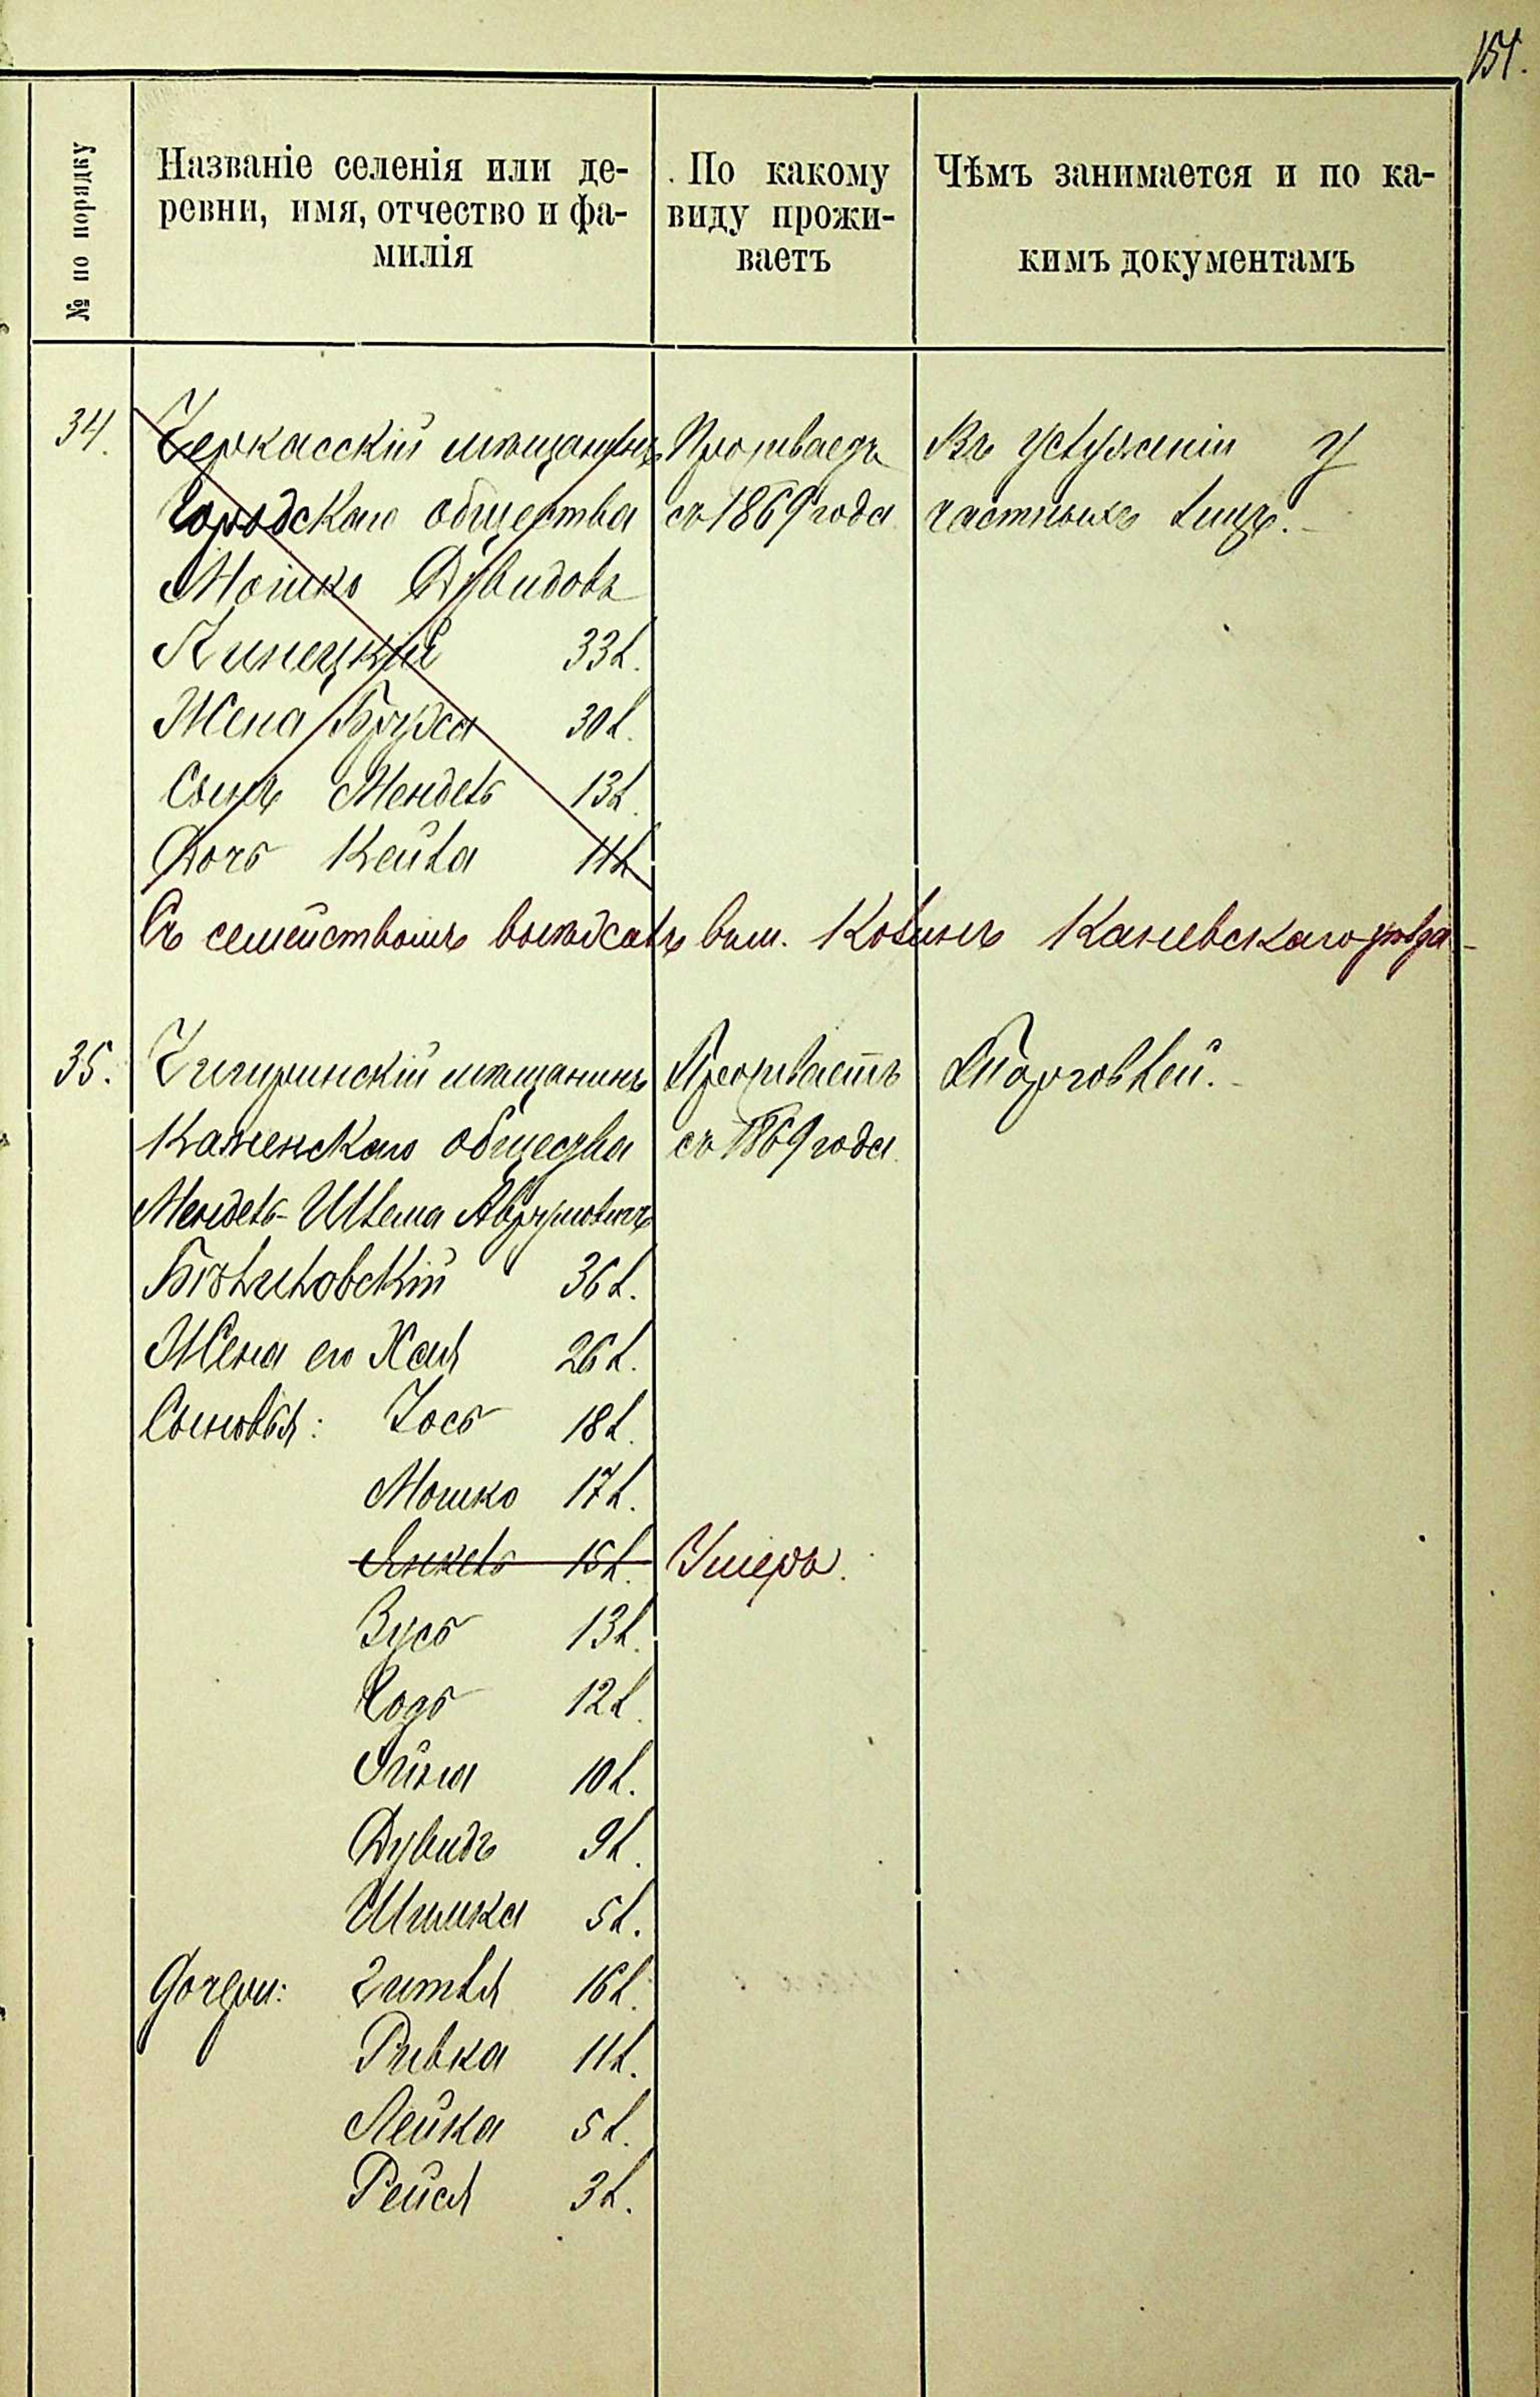 151.
№ по порядку
Названіе селенія или де-
ревни, имя, отчество и фа-
милія
По какому
виду прожи-
ваетъ
Чѣмъ занимается и по ка-
кимъ документамъ
34. Черкасскій мѣщанинъ Проживаетъ Въ услуженіи у
Городскаго общества съ 1869 года частныхъ лицъ.
Мошко Дувидовъ
Линецкій 33 л.
Жена Бруха 30 л.
Сынъ Мендель 13 л.
Дочь Кейла 11 л.
Съ семействомъ выѣхалъ въ м. Ковинъ Каневскаго уѣзда
35. Чигиринскій мѣщанинъ Проживаетъ Торговлей.
Каменскаго общества съ 1869 года
Мендель-Шлема Аврумовичъ
36 л.
Жена его Хая 26 л.
Сыновья: Іось 18 л.
Мошко 17 л.
Янкель 15 л. Умеръ.
Зусь 13 л.
12 л.
10 л.
Дувидъ 9 л.
Шимка 5 л.
Дочери: Гитля 16 л.
Ривка 11 л.
Лейка 5 л.
Рейся 3 л.